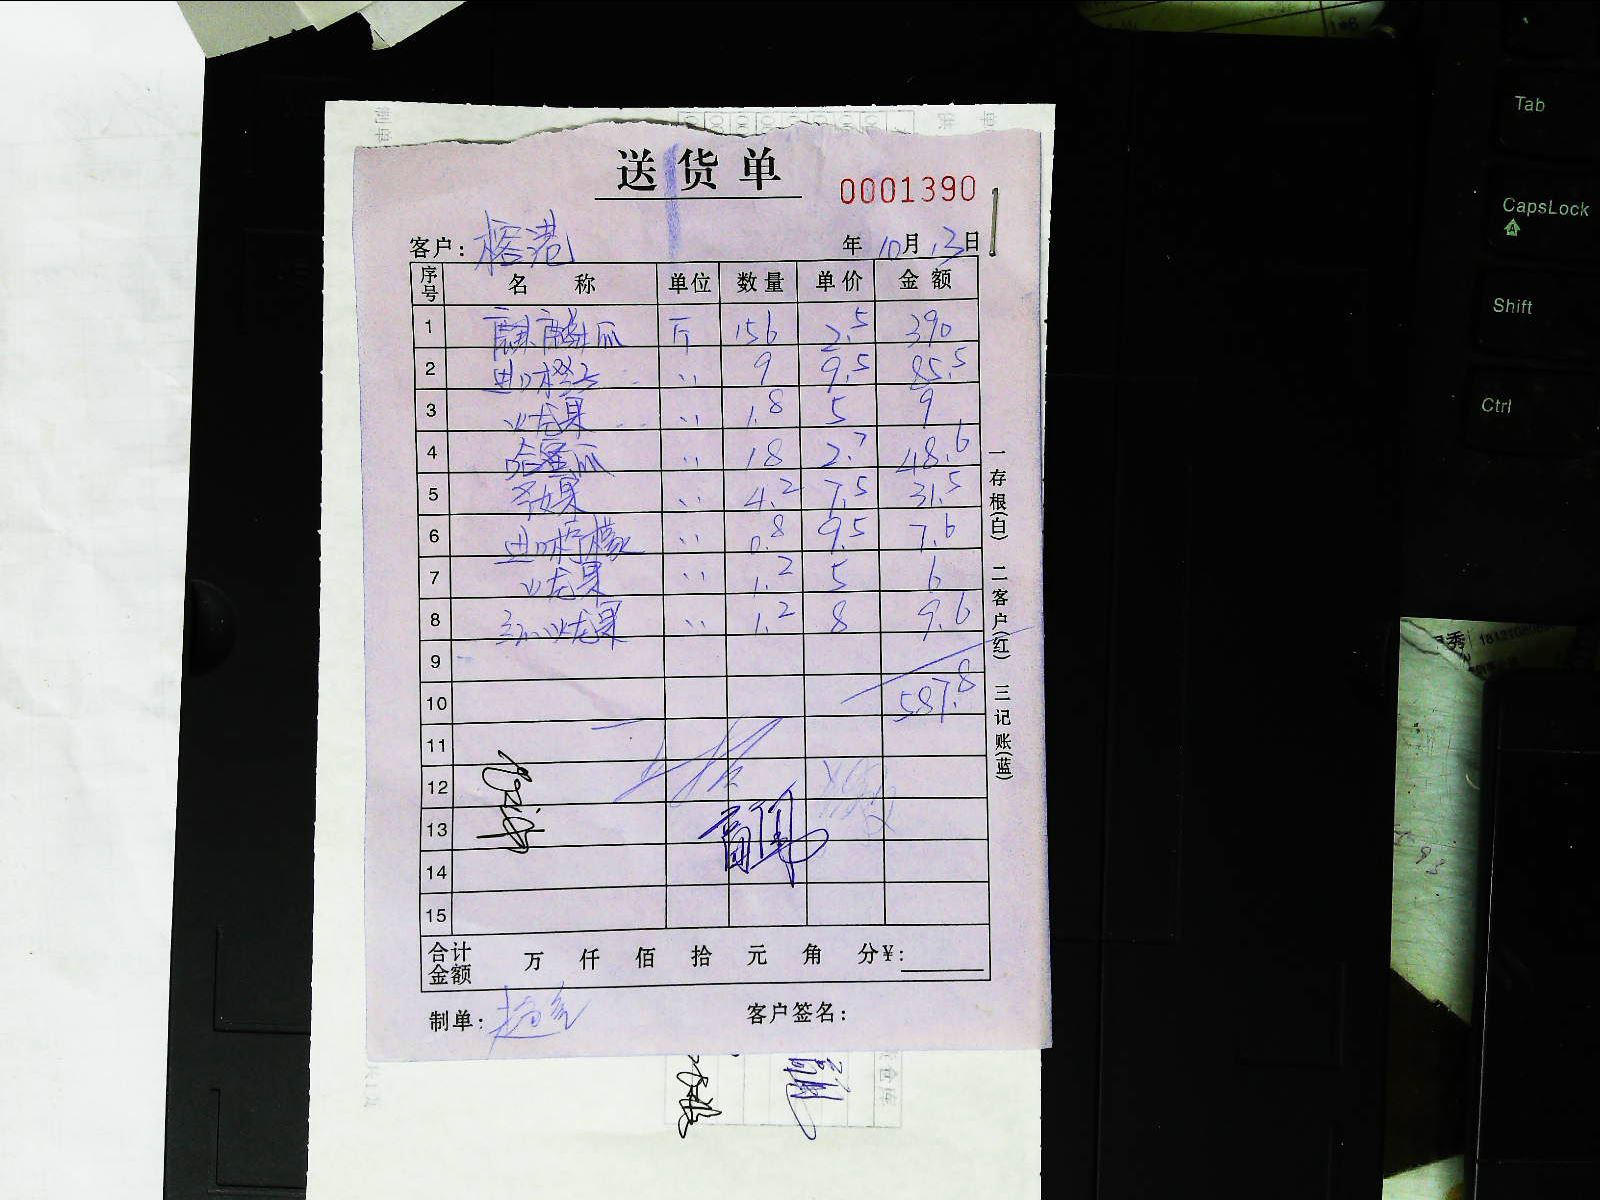 送货单
0001390
客户: 榕港 年 10月 13日
序号 名称 单位 数量 单价 金额
1 麒麟瓜 斤 156 2.5 390
2 进口橙子 〃 9 9.5 85.5
3 火龙果 〃 1.8 5 9
4 哈蜜瓜 〃 18 2.7 48.6
5 圣女果 〃 4.2 7.5 31.5
6 进口柠檬 〃 0.8 9.5 7.6
7 火龙果 〃 1.2 5 6
8 红心火龙果 〃 1.2 8 9.6
9
10 587.8
11
12
13
14
15
合计金额 万 仟 佰 拾 元 角 分¥:
制单: 客户签名:
一存根(白) 二客户(红) 三记账(蓝)
Tab
CapsLock
Shift
Ctrl